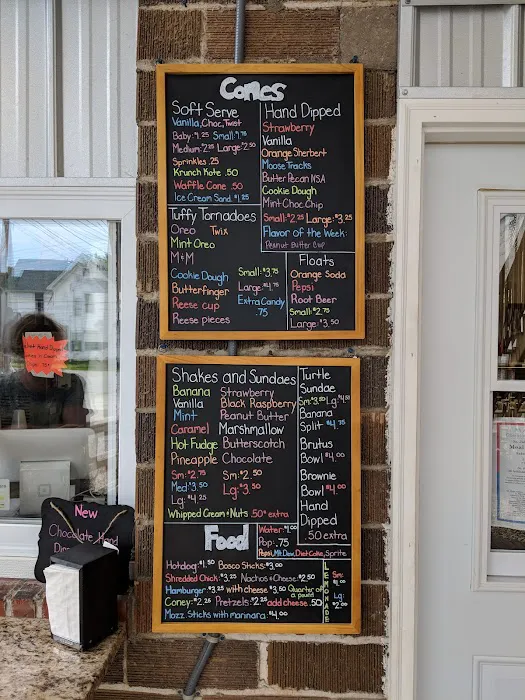 Cones
Soft Serve
Vanilla, Choc, Twist
Baby: $1.25 Small: $1.75
Medium: $2.25 Large: $2.50
Sprinkles .25
Krunch Kote .50
Waffle Cone .50
Ice Cream Sand. $1.25
Hand Dipped
Strawberry
Vanilla
Orange Sherbert
Moose Tracks
Butter Pecan NSA
Cookie Dough
Mint Choc Chip
Small: $2.25 Large: $3.25
Flavor of the Week:
Peanut Butter Cup
Tuffy Tornadoes
Oreo Twix
Mint Oreo
M&M
Cookie Dough
Butterfinger
Reese cup
Reese pieces
Small: $3.75
Large: $4.75
Extra Candy
.75
Floats
Orange Soda
Pepsi
Root Beer
Small: $2.75
Large: $3.50
Shakes and Sundaes
Banana Strawberry
Vanilla Black Raspberry
Mint Peanut Butter
Caramel Marshmallow
Hot Fudge Butterscotch
Pineapple Chocolate
Sm: $2.75
Med: $3.50
Lg: $4.25
Sm: $2.50
Lg: $3.50
Whipped Cream & Nuts .50¢ extra
Turtle
Sundae
Sm: $3.50 Lg: $4.50
Banana
Split $4.75
Brutus
Bowl $4.00
Brownie
Bowl $4.00
Hand
Dipped
.50 extra
Food
Water: $1.00
Pop: .75
Pepsi, Mt. Dew, Diet Coke, Sprite
Hotdog: $1.50 Bosco Sticks: $3.00
Shredded Chick: $3.25 Nachos & Cheese: $2.50
Hamburger: $3.25 with cheese: $3.50 Quarter of a pound
Coney: $2.25 Pretzels: $2.25 add cheese .50
Mozz. Sticks with marinara: $4.00
LEMONADE
Sm:
Lg:
$2.00
New
Chocolate Hand